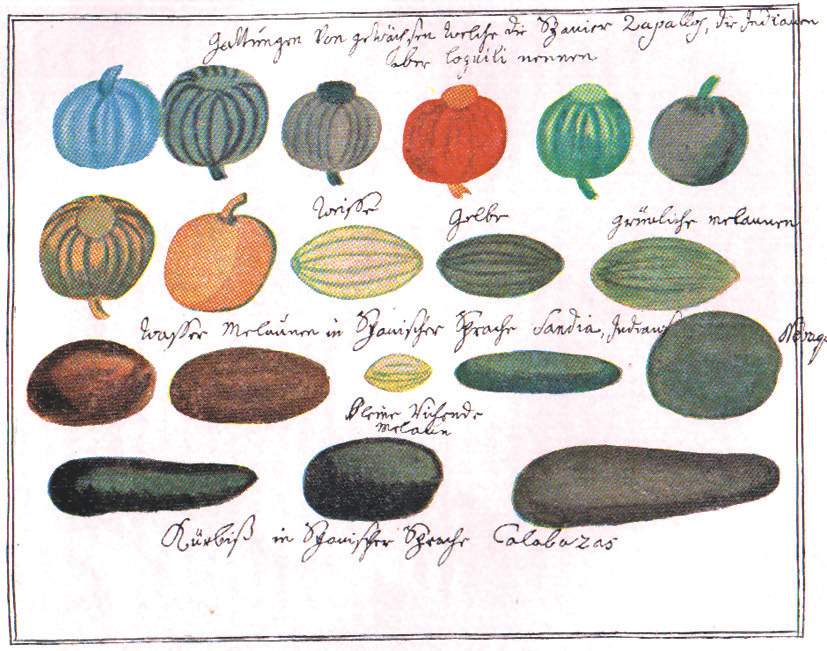 Gattungen Von gewächsen welche die Spanier Zapallos, die Indianer
aber loquili nennen
Weisse
gelbe
grünliche melaunen
Wasser Melaunen in Spanischer Sprache Sandia, Indianisch
Kleine Richende
Melaun
Kürbiß in Spanischer Sprache Calabazas